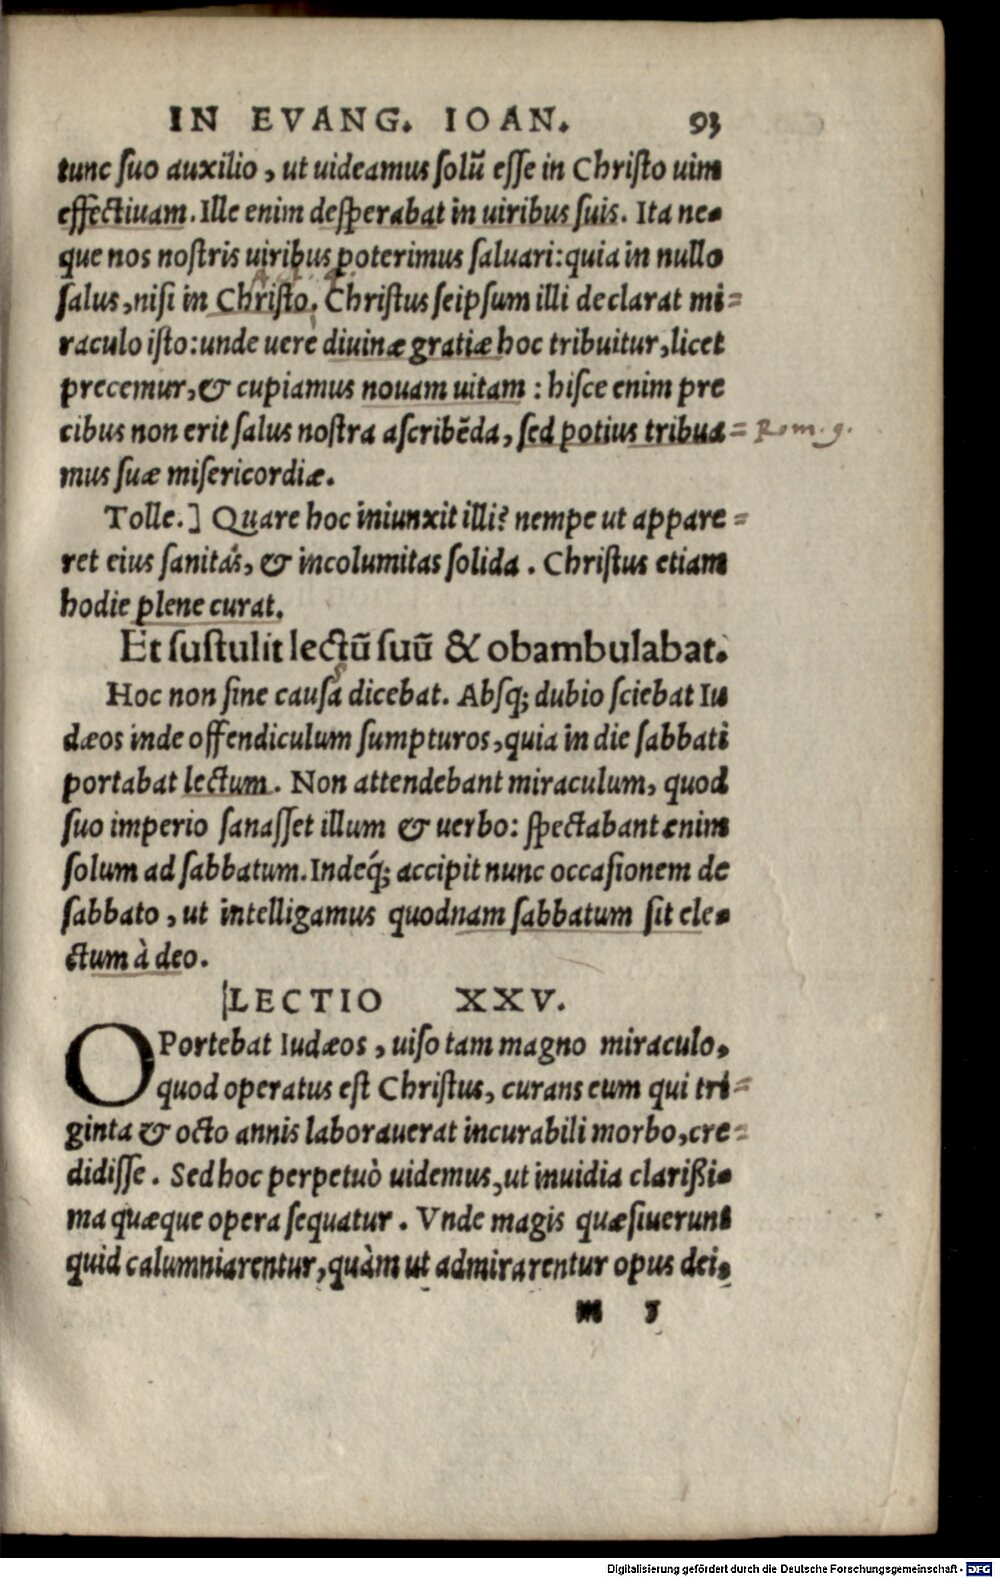 IN EVANG. IOAN. 93
tunc suo auxilio, ut uideamus solũ esse in Christo uim
effectiuam. Ille enim desperabat in uiribus suis. Ita ne-
que nos nostris uiribus poterimus saluari: quia in nullo
salus, nisi in Christo. Christus seipsum illi declarat mi=
raculo isto: unde uere diuinæ gratiæ hoc tribuitur, licet
precemur, & cupiamus nouam uitam : hisce enim pre
cibus non erit salus nostra ascribẽda, sed potius tribua= Rom. 9.
mus suæ misericordiæ.
Tolle.] Quare hoc iniunxit illi? nempe ut appare=
ret eius sanitás, & incolumitas solida. Christus etiam
hodie plene curat.
Et sustulit lectũ suũ & obambulabat.
Hoc non sine causa dicebat. Absq; dubio sciebat Iu
dæos inde offendiculum sumpturos, quia in die sabbati
portabat lectum. Non attendebant miraculum, quod
suo imperio sanasset illum & uerbo: spectabant enim
solum ad sabbatum. Indeq́; accipit nunc occasionem de
sabbato, ut intelligamus quodnam sabbatum sit ele-
ctum à deo.
LECTIO XXV.
OPortebat Iudæos, uiso tam magno miraculo,
quod operatus est Christus, curans eum qui tri=
ginta & octo annis laborauerat incurabili morbo, cre=
didisse. Sed hoc perpetuò uidemus, ut inuidia clarißi-
ma quæque opera sequatur. Vnde magis quæsiuerunt
quid calumniarentur, quàm ut admirarentur opus dei,
m 5
Digitalisierung gefördert durch die Deutsche Forschungsgemeinschaft - DFG